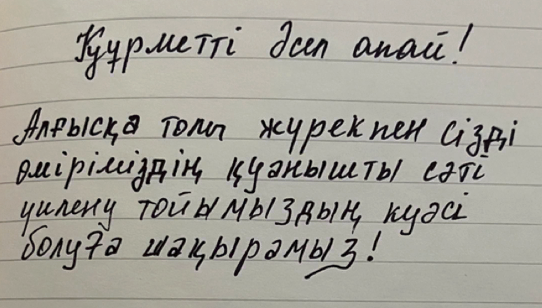 Құрметті Әсел апай!
Алғысқа толы жүрекпен сізді
өміріміздің қуанышты сәті
үйлену тойымыздың куәсі
болуға шақырамыз!